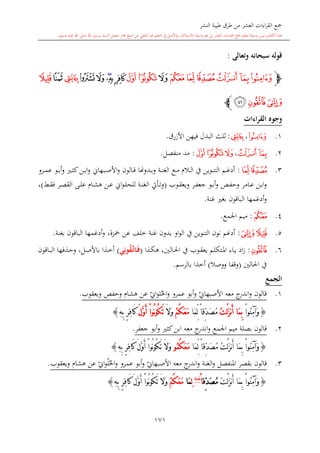 جمع القراءات العشر من طرق طيبة النشر
قوله سبحانه وتعالى :
﴿ وَءَامِنُوا۟ بِمَآ أَنزَلْتُ مُصَدِّقًا لِّمَا مَعَكُمْ وَلَا تَكُونُوٓا۟ أَوَّلَ كَافِرٍۭ بِهِۦ وَلَا تَشْتَرُوا۟ بِـَٔايَـٰتِى ثَمَنًا قَلِيلًا
وَإِيَّـٰىَ فَٱتَّقُونِ ٤١ ﴾
وجوه القراءات
١. وَءَامِنُوا۟، بِـَٔايَـٰتِى : ثلث البدل فيهن الأزرق.
٢. بِمَآ أَنزَلْتُ، وَلَا تَكُونُوٓا۟ أَوَّلَ : مد منفصل.
٣. مُصَدِّقًا لِّمَا : أدغم التنوين في اللام مع الغنة وبدونها قالون والأصبهاني وابن كثير وأبو عمرو
وابن عامر وحفص وأبو جعفر ويعقوب (وتأتي الغنة للحلواني عن هشام على القصر فقط)،
وأدغمها الباقون بغير غنة.
٤. مَعَكُمْ : ميم الجمع.
٥. قَلِيلًا وَإِيَّـٰىَ : أدغم نون التنوين في الواو بدون غنة خلف عن حمزة، وأدغمها الباقون بغنة.
٦. فَٱتَّقُونِ : زاد ياء المتكلم يعقوب في الحالين، هكذا (فَٱتَّقُونِى) أخذا بالأصل، وحذفها الباقون
في الحالين (وقفا ووصلا) أخذا بالرسم.
الجمع
١. قالون واندرج معه الأصبهانيّ وأبو عمرو والحُلْوانيّ عن هشام وحفص ويعقوب.
﴿ وَآمِنُوا۟ بِمَا أَنزَلْتُ مُصَدِّقًا لِّمَا مَعَكُمْ وَلَا تَكُونُوا۟ أَوَّلَ كَافِرٍ بِهِ ﴾
٢. قالون بصلة ميم الجمع واندرج معه ابن كثير وأبو جعفر.
﴿ وَآمِنُوا۟ بِمَا أَنزَلْتُ مُصَدِّقًا لِّمَا مَعَكُمُو وَلَا تَكُونُوا۟ أَوَّلَ كَافِرٍ بِهِ ﴾
٣. قالون بقصر المنفصل والغنة واندرج معه الأصبهانيّ وأبو عمرو والحُلْوانيّ عن هشام ويعقوب.
﴿ وَآمِنُوا۟ بِمَا أَنزَلْتُ مُصَدِّقًا لِّمَا مَعَكُمْ وَلَا تَكُونُوا۟ أَوَّلَ كَافِرٍ بِهِ ﴾
١٧١